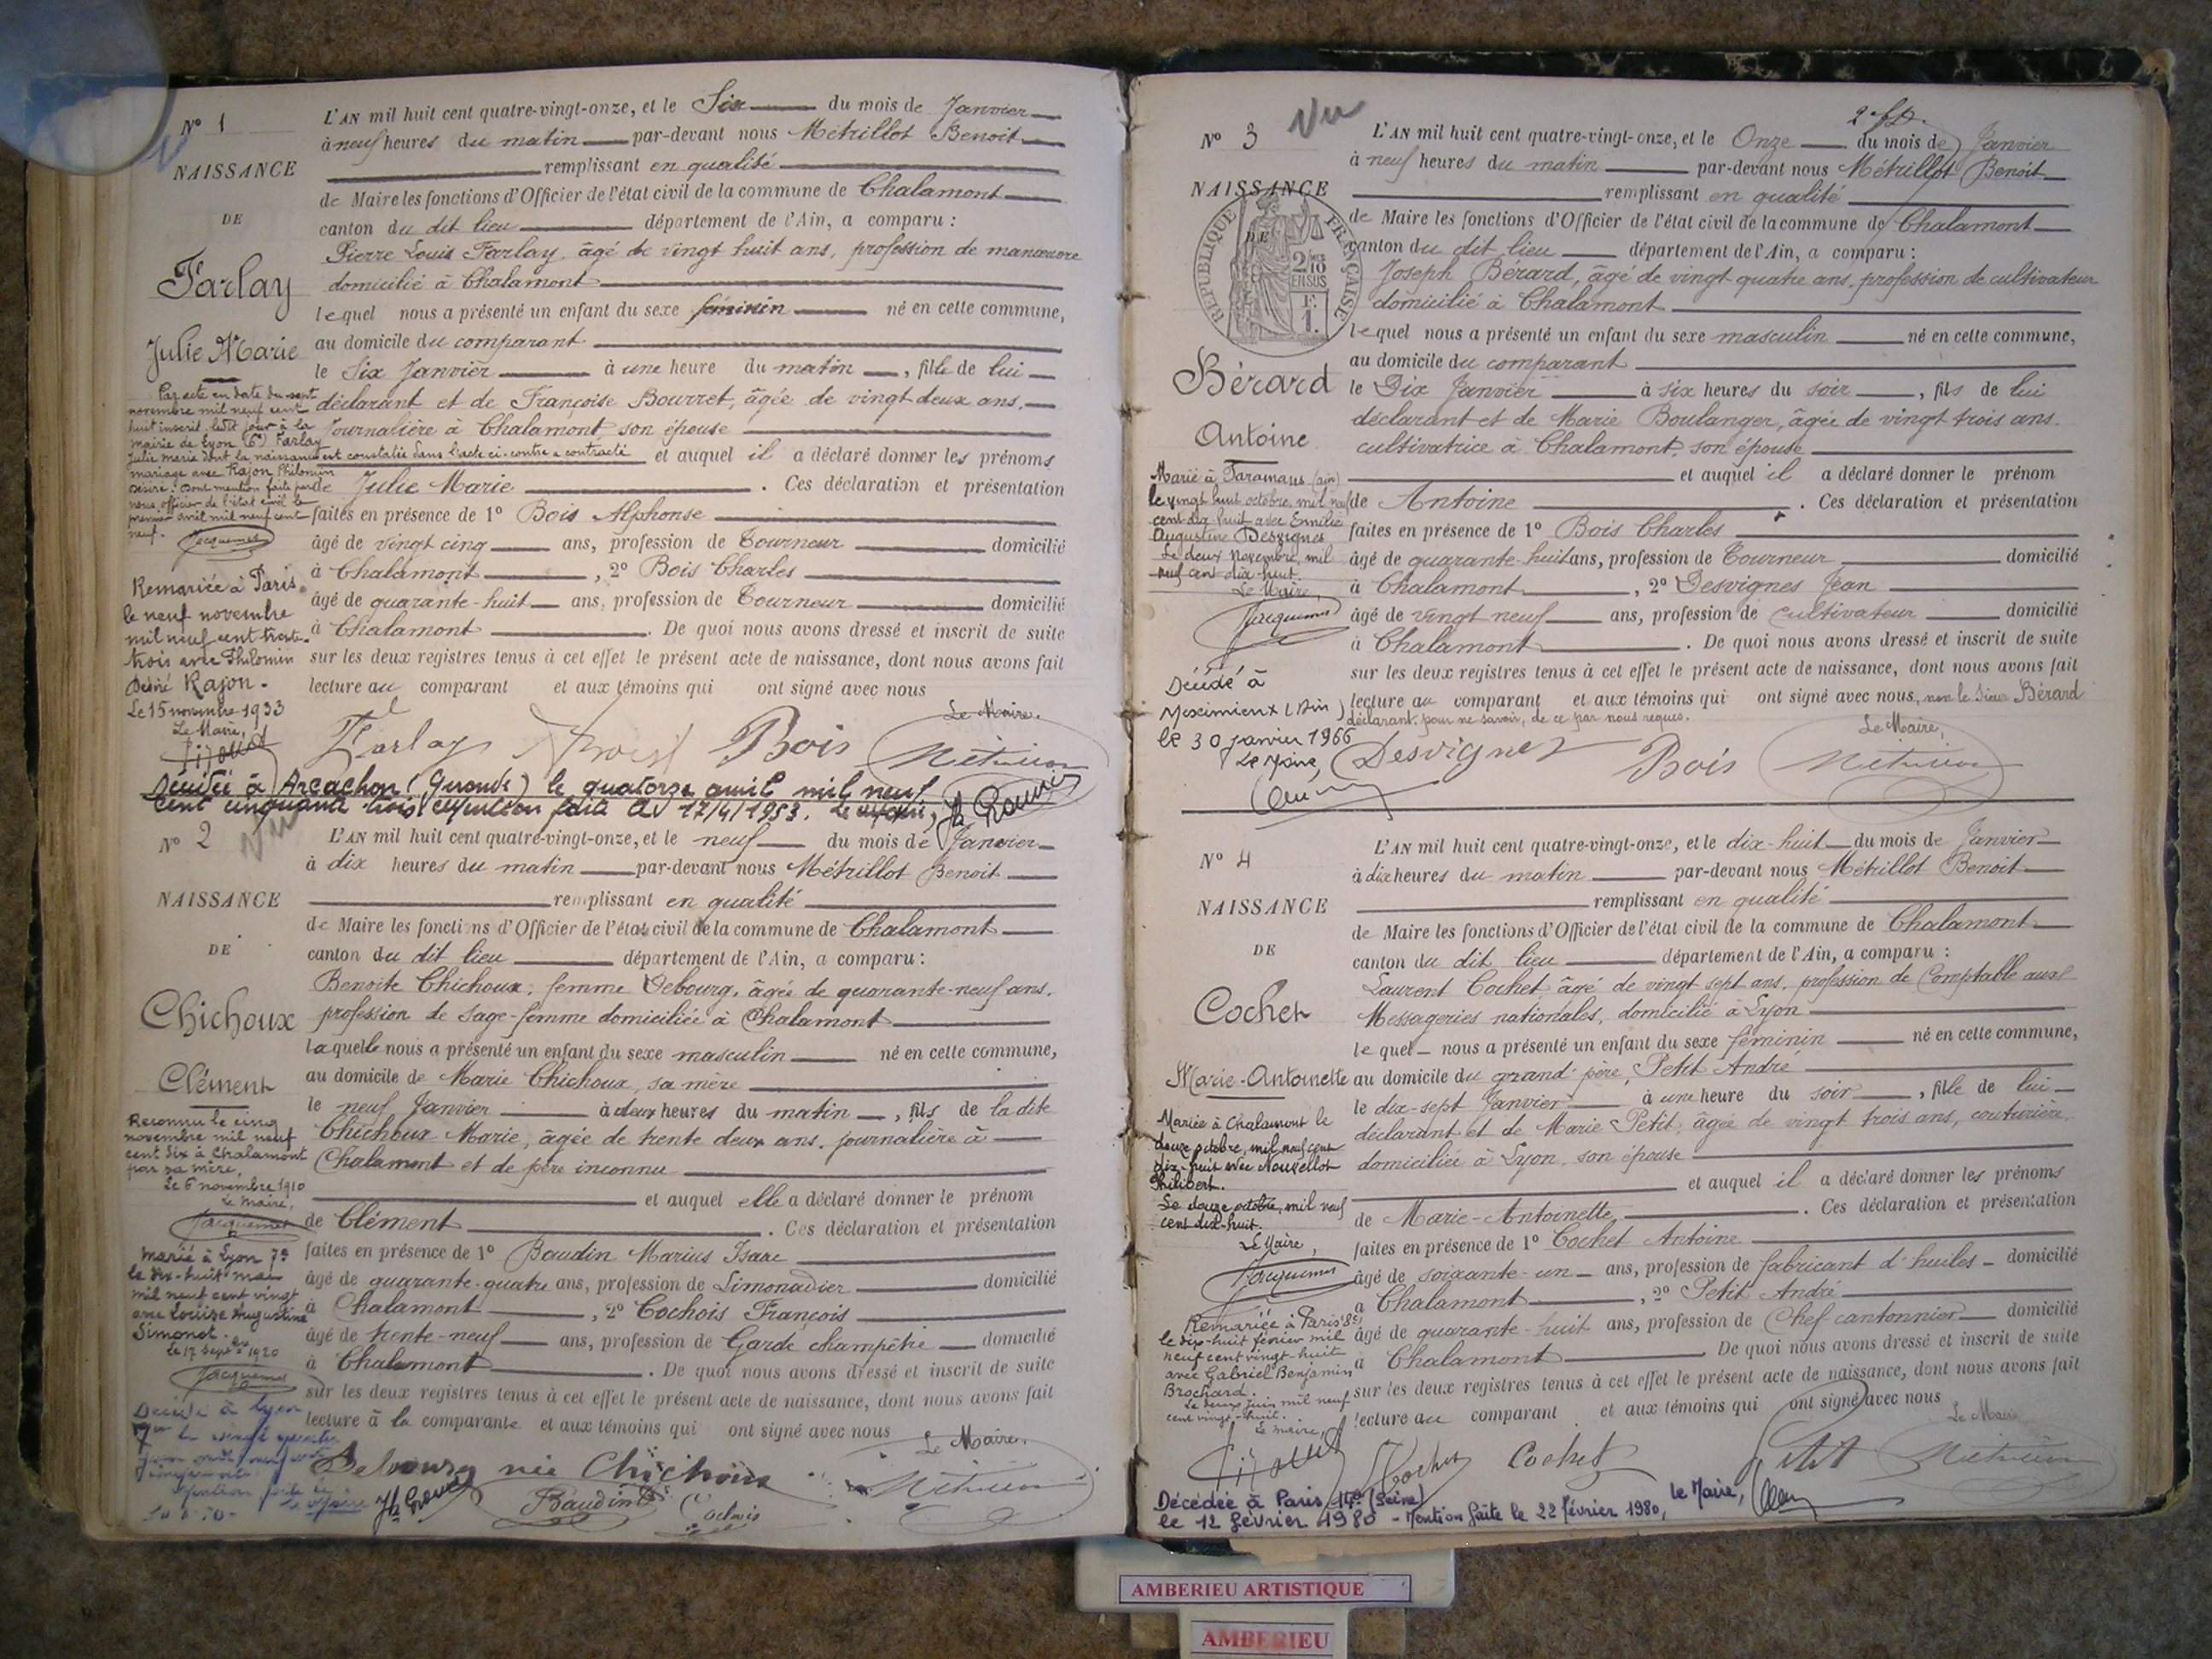 N° 1
NAISSANCE
DE
Farlay
Julie Marie
Par acte en date du sept
novembre mil neuf cent
huit inscrit ledit jour à la
mairie de Lyon (6e) Farlay
Julie Marie dont la naissance est constatée dans l'acte ci-contre a contracté
mariage avec Rajon Philomin
Désiré. Dont mention faite par
nous officier de l'état civil le
premier avril mil neuf cent
neuf.
Jacquemet
Remariée à Paris
le neuf novembre
mil neuf cent trente-
trois avec Philomin
Désiré Rajon.
Le 15 novembre 1933
Le Maire,
L'AN mil huit cent quatre-vingt-onze, et le Six du mois de Janvier
à neuf heures du matin par-devant nous Métrillot Benoit
remplissant en qualité
de Maire les fonctions d'Officier de l'état civil de la commune de Chalamont
canton du dit lieu département de l'Ain, a comparu :
Pierre Louis Farlay, âgé de vingt huit ans, profession de manœuvre
domicilié à Chalamont
lequel nous a présenté un enfant du sexe féminin né en cette commune,
au domicile du comparant
le Six Janvier à une heure du matin, fille de lui
déclarant et de Françoise Bourret, âgée de vingt deux ans,
Journalière à Chalamont, son épouse
et auquel il a déclaré donner les prénoms
de Julie Marie. Ces déclaration et présentation
faites en présence de 1° Bois Alphonse
âgé de vingt cinq ans, profession de Tourneur domicilié
à Chalamont, 2° Bois Charles
âgé de quarante-huit ans, profession de Tourneur domicilié
à Chalamont. De quoi nous avons dressé et inscrit de suite
sur les deux registres tenus à cet effet le présent acte de naissance, dont nous avons fait
lecture au comparant et aux témoins qui ont signé avec nous
Le Maire.
Farlay Bois Bois
Décédée à Arcachon (Gironde) le quatorze avril mil neuf
cent cinquante trois
17/4/1953.
N° 2
Vu
NAISSANCE
DE
Chichoux
Clément
Reconnu le cinq
novembre mil neuf
cent dix à Chalamont
par sa mère.
Le 6 novembre 1910
Le Maire,
Jacquemet
Marié à Lyon 7e
le dix-huit mai
mil neuf cent vingt
avec Louise Augustine
Simonet.
Le 17 Sepbre 1920
Jacquemet
Décédé à Lyon
L'AN mil huit cent quatre-vingt-onze, et le neuf du mois de Janvier
à dix heures du matin par-devant nous Métrillot Benoit
remplissant en qualité
de Maire les fonctions d'Officier de l'état civil de la commune de Chalamont
canton du dit lieu département de l'Ain, a comparu :
Benoite Chichoux, femme Debourg, âgée de quarante-neuf ans,
profession de sage-femme domiciliée à Chalamont
laquelle nous a présenté un enfant du sexe masculin né en cette commune,
au domicile de Marie Chichoux, sa mère
le neuf Janvier à deux heures du matin, fils de la dite
Chichoux Marie, âgée de trente deux ans, journalière à
Chalamont et de père inconnu
et auquel elle a déclaré donner le prénom
de Clément. Ces déclaration et présentation
faites en présence de 1° Baudin Marius Isaac
âgé de quarante-quatre ans, profession de Limonadier domicilié
à Chalamont, 2° Cochois François
âgé de trente-neuf ans, profession de Garde champêtre domicilié
à Chalamont. De quoi nous avons dressé et inscrit de suite
sur les deux registres tenus à cet effet le présent acte de naissance, dont nous avons fait
lecture à la comparante et aux témoins qui ont signé avec nous
Le Maire.
Debourg née Chichoux
Baudin Cochois
N° 3
Vu
NAISSANCE
DE
RÉPUBLIQUE FRANÇAISE
2/10 EN SUS
F. 1.
Bérard
Antoine
Marié à Faramans (Ain)
le vingt huit octobre mil neuf
cent dix huit avec Emilie
Augustine Desvignes
Le deux Novembre mil
neuf cent dix-huit.
Le Maire,
Jacquemet
Décédé à
Meximieux (Ain)
le 30 janvier 1966
Le Maire,
L'AN mil huit cent quatre-vingt-onze, et le Onze du mois de Janvier
à neuf heures du matin par-devant nous Métrillot Benoit
remplissant en qualité
de Maire les fonctions d'Officier de l'état civil de la commune de Chalamont
canton du dit lieu département de l'Ain, a comparu :
Joseph Bérard, âgé de vingt quatre ans, profession de cultivateur
domicilié à Chalamont
lequel nous a présenté un enfant du sexe masculin né en cette commune,
au domicile du comparant
le Dix Janvier à six heures du soir, fils de lui
déclarant et de Marie Boulanger, âgée de vingt trois ans.
cultivatrice à Chalamont, son épouse
et auquel il a déclaré donner le prénom
de Antoine. Ces déclaration et présentation
faites en présence de 1° Bois Charles
âgé de quarante-huit ans, profession de Tourneur domicilié
à Chalamont, 2° Desvignes Jean
âgé de vingt neuf ans, profession de cultivateur domicilié
à Chalamont. De quoi nous avons dressé et inscrit de suite
sur les deux registres tenus à cet effet le présent acte de naissance, dont nous avons fait
lecture au comparant et aux témoins qui ont signé avec nous, non le sieur Bérard
déclarant, pour ne savoir, de ce par nous requis.
Le Maire,
Desvignes Bois
N° 4
NAISSANCE
DE
Cochet
Marie-Antoinette
Mariée à Chalamont le
douze octobre, mil neuf cent
dix-huit avec Nouvellot
Philibert.
Le douze octobre, mil neuf
cent dix-huit.
Le Maire,
Jacquemet
Remariée à Paris 8e
le dix-huit février mil
neuf cent vingt-huit
avec Gabriel Benjamin
Brochard.
Le deux Juin mil neuf
cent vingt-huit.
Le maire,
L'AN mil huit cent quatre-vingt-onze, et le dix-huit du mois de Janvier
à dix heures du matin par-devant nous Métrillot Benoit
remplissant en qualité
de Maire les fonctions d'Officier de l'état civil de la commune de Chalamont
canton du dit lieu département de l'Ain, a comparu :
Laurent Cochet, âgé de vingt sept ans, profession de Comptable aux
Messageries nationales, domicilié à Lyon
lequel nous a présenté un enfant du sexe féminin né en cette commune,
au domicile du grand-père, Petit André
le dix-sept Janvier à une heure du soir, fille de lui
déclarant et de Marie Petit, âgée de vingt trois ans, couturière,
domiciliée à Lyon, son épouse
et auquel il a déclaré donner les prénoms
de Marie-Antoinette. Ces déclaration et présentation
faites en présence de 1° Cochet Antoine
âgé de soixante-un ans, profession de fabricant d'huiles domicilié
à Chalamont, 2° Petit André
âgé de quarante-huit ans, profession de Chef cantonnier domicilié
à Chalamont. De quoi nous avons dressé et inscrit de suite
sur les deux registres tenus à cet effet le présent acte de naissance, dont nous avons fait
lecture au comparant et aux témoins qui ont signé avec nous
Le Maire
Cochet Cochet Petit
Décédée à Paris 14e (Seine)
le 12 février 1980 - Mention faite le 22 février 1980, le Maire,
AMBERIEU ARTISTIQUE
AMBERIEU